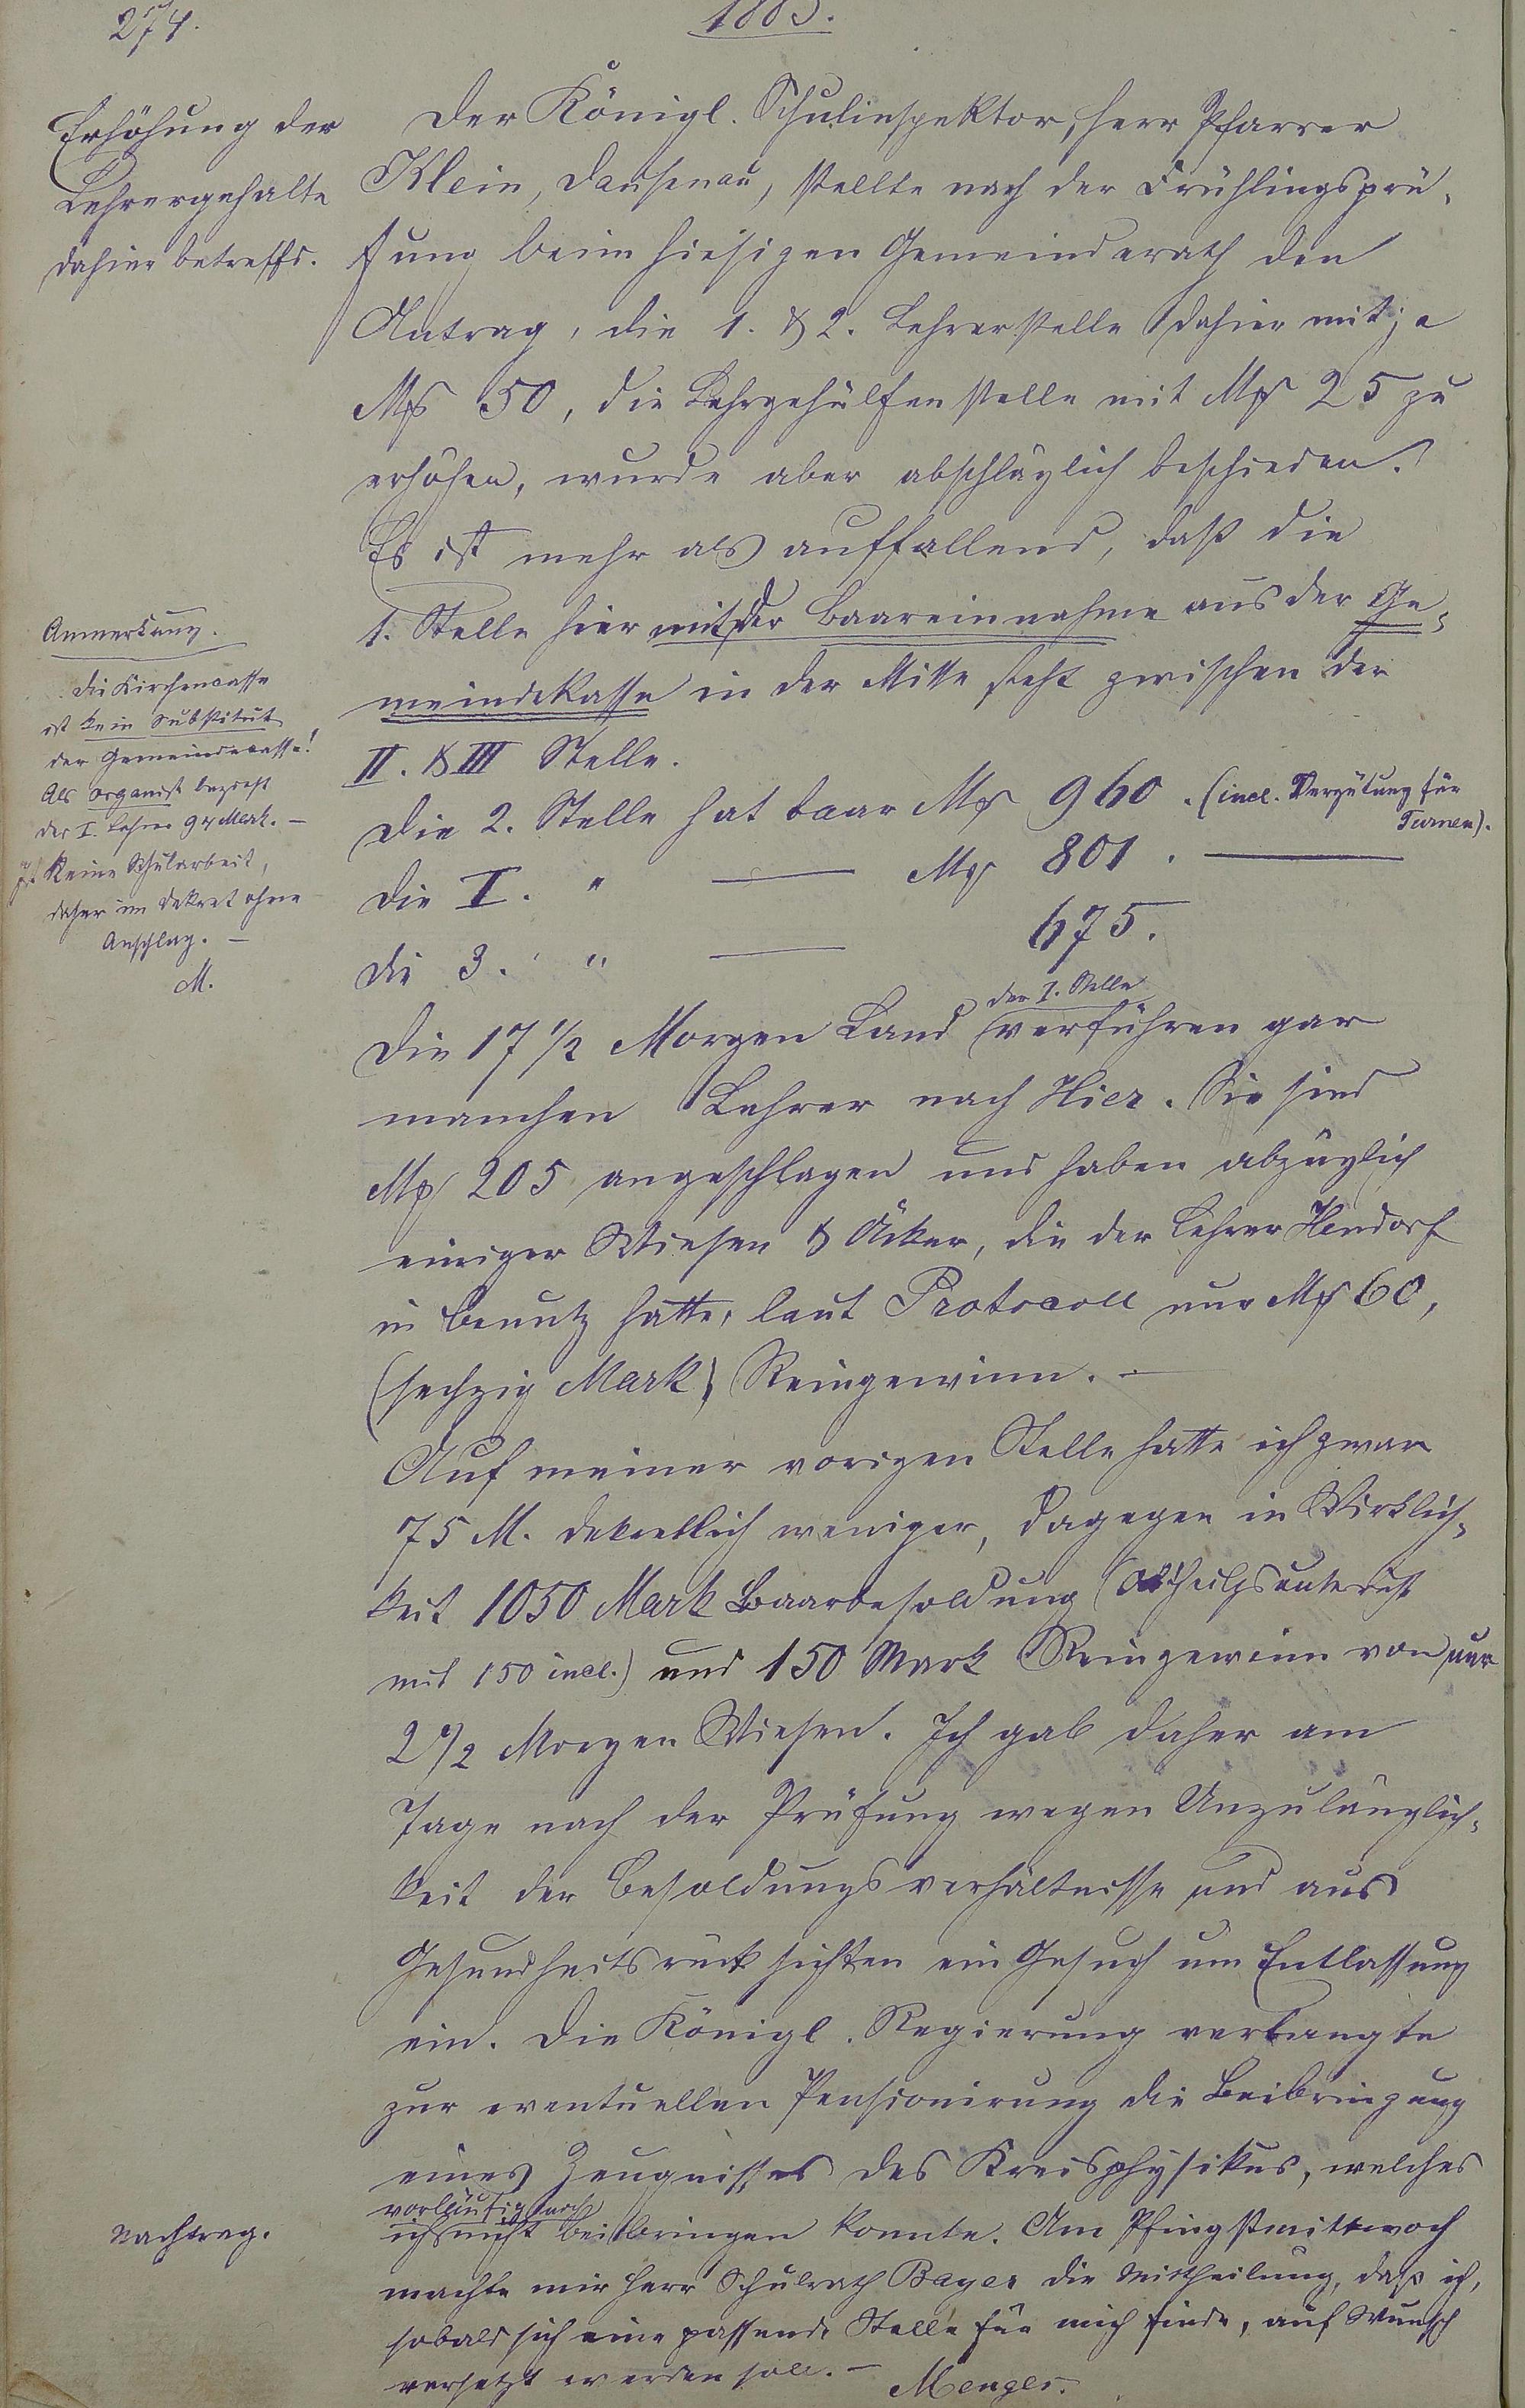 274.
1885.
Erhöhung der
Lehrergehalte
dahier betreffs.
Der Königl. Schulinspektor, Herr Pfarrer
Klein, Dausenau, stellte nach der Frühlingsprü-
fung beim hiesigen Gemeinderath den
Antrag, die 1. & 2. Lehrerstelle dahier mit je
Mk 50, die Lehrgehülfenstelle mit Mk 25 zu
erhöhen, wurde aber abschläglich beschieden.
Es ist mehr als auffallend, daß die
1. Stelle hier mit der Baareinnahme aus der Ge-
meindekasse in der Mitte steht zwischen der
II. & III Stelle.
Die 2. Stelle hat baar Mk 960. (incl. Vergütung für
Turnen).
Die I. " — Mk 801. —
Die 3. " — 675.
Anmerkung.
Die Kirchencasse
ist kein Substitut
der Gemeindecasse!
Als Organist bezieht
der I. Lehrer 94 Mark. —
Ist keine Schularbeit,
daher im Dekret ohne
Anschlag. —
M.
der I. Stelle
Die 17 1/2 Morgen Land verführen gar
manchen Lehrer nach Hier. Sie sind
Mk 205 angeschlagen und haben abzüglich
einiger Wiesen & Äcker, die der Lehrer Hendorf
in Benutz hatte, laut Protocoll nur Mk 60,
(sechzig Mark) Reingewinn. —
Auf meiner vorigen Stelle hatte ich zwar
75 M. dekretlich weniger, dagegen in Wirklich-
keit 1050 Mark Baarbesoldung
mit 150 incl.) und 150 Mark Reingewinn von nur
2 1/2 Morgen Wiesen. Ich gab daher am
Tage nach der Prüfung wegen Unzulänglich-
keit der Besoldungsverhältnisse und aus
Gesundheitsrücksichten ein Gesuch um Entlassung
ein. Die Königl. Regierung verlangte
zur eventuellen Pensionirung die Beibringung
eines Zeugnisses des Kreisphysikus, welches
vorläufig noch
ich nicht beibringen konnte. Am Pfingstmittwoch
Nachtrag.
machte mir Herr Schulrath Bayer die Mittheilung, daß ich,
sobald sich eine passende Stelle für mich finde, auf Wunsch
versetzt werden soll. — Menges.